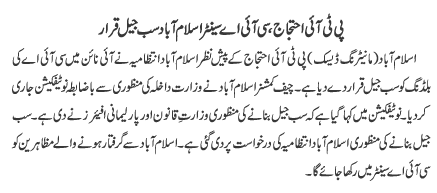 پی ٹی آئی احتجاج ،سی آئی اے سینٹر اسلام آباد سب جیل قرار
اسلام آباد (مانیٹرنگ ڈیسک) پی ٹی آئی احتجاج کے پیش نظر اسلام آباد انتظامیہ نے آئی نائن میں سی آئی اے کی
بلڈنگ کو سب جیل قرار دے دیا ہے۔ چیف کمشنر اسلام آباد نے وزارت داخلہ کی منظوری سے باضابطہ نوٹیفکیشن جاری
کر دیا۔ نوٹیفکیشن میں کہا گیا ہے کہ سب جیل بنانے کی منظوری وزارت قانون اور پارلیمانی افیئرز نے دی ہے۔ سب
جیل بنانے کی منظوری اسلام آباد انتظامیہ کی درخواست پر دی گئی ہے۔ اسلام آباد سے گرفتار ہونے والے مظاہرین کو
سی آئی اے سینٹر میں رکھا جائے گا۔